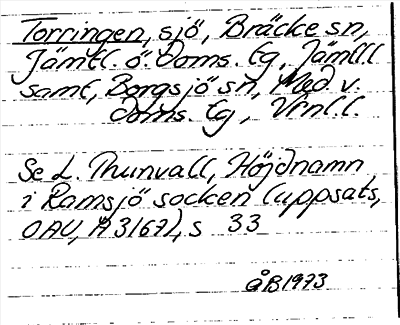 Torringen, sjö, Bräcke sn,
Jämtl. ö. Doms. tg, Jämtl.l
samt, Borgsjö sn, Med. v.
doms. tg, Vrnl.l.
Se L. Thunvall, Höjdnamn
i Ramsjö socken (uppsats,
OAU, A 3167), s 33
ÅB 1973